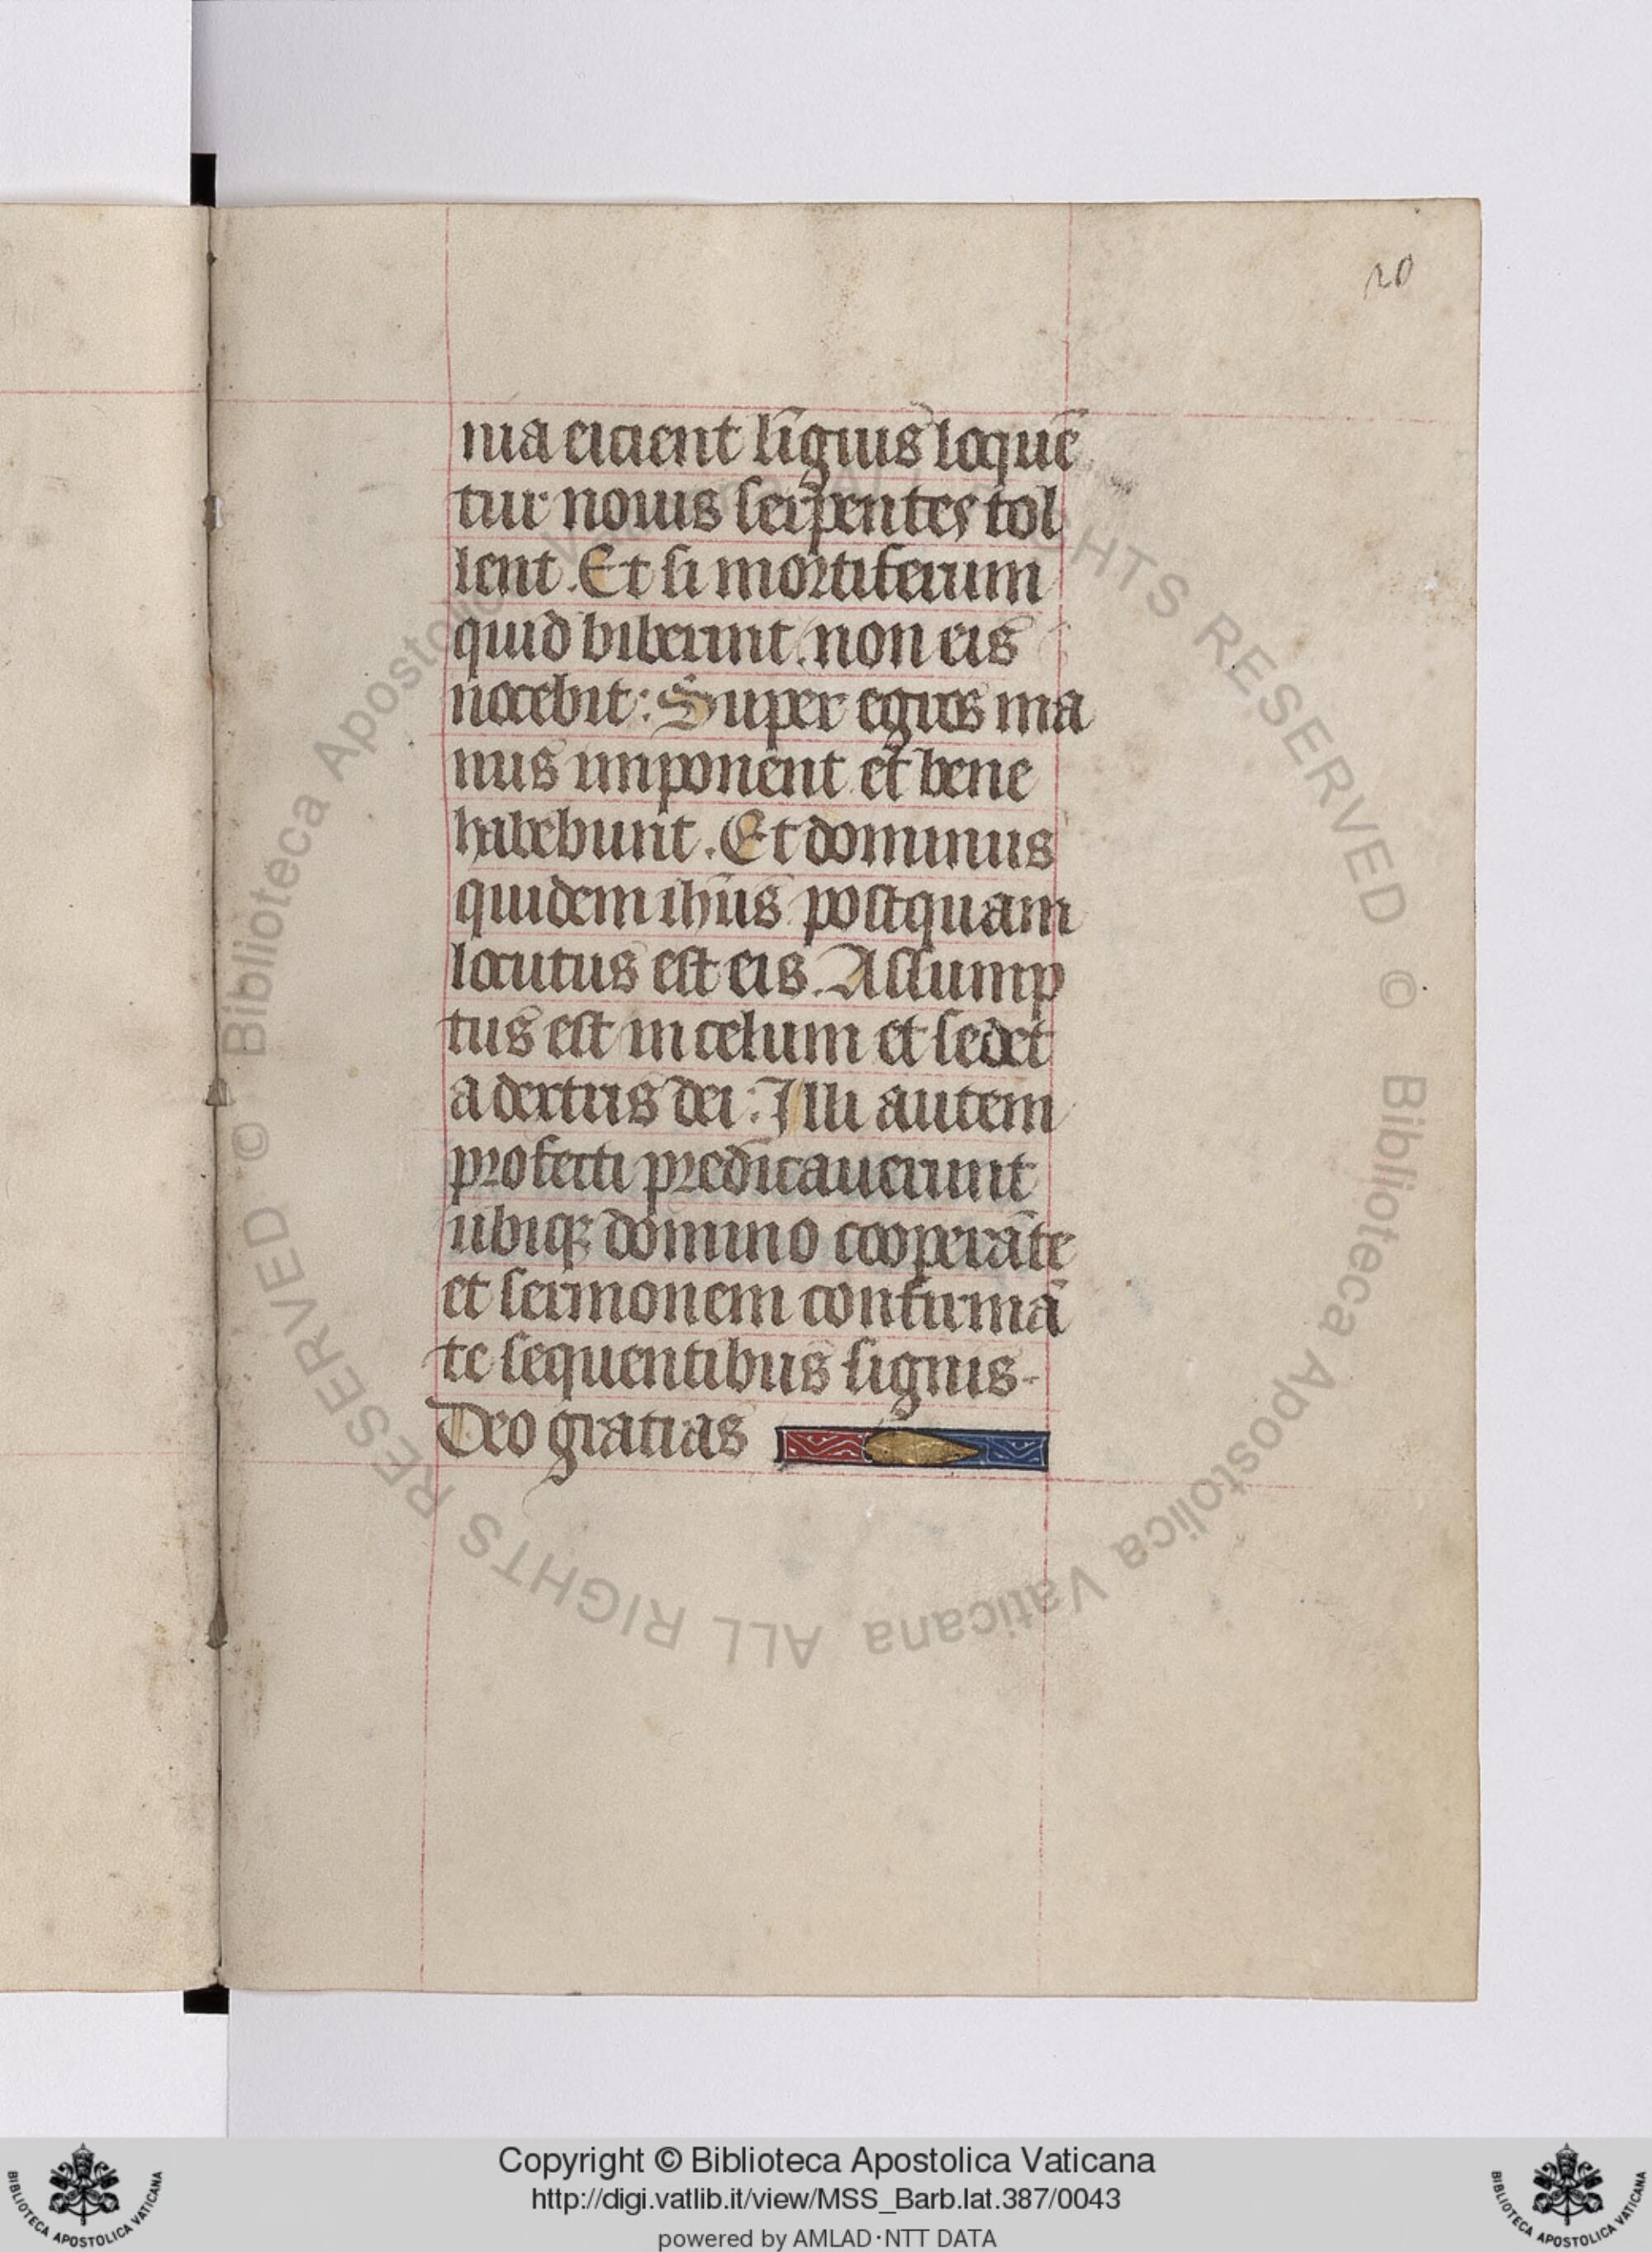 20
nia eicient lĩguis loquẽ
tur nouis serpentes tol
lent. Et si mortiferum
quid biberint. non eis
nocebit: Super egros ma
nus imponent et bene
habebunt. Et dominus
quidem ihũs postquam
locutus est eis. Assump
tus est in celum et sedet
a dextris dei: Illi autem
profecti predicauerunt
ubiqꝫ domino cooperãte
et sermonem confirmã
te sequentibus signis-
Deo gratias
© Biblioteca Apostolica Vaticana ALL RIGHTS RESERVED
© Biblioteca Apostolica Vaticana ALL RIGHTS RESERVED
Copyright © Biblioteca Apostolica Vaticana
http://digi.vatlib.it/view/MSS_Barb.lat.387/0043
powered by AMLAD·NTT DATA
BIBLIOTECA APOSTOLICA VATICANA
BIBLIOTECA APOSTOLICA VATICANA